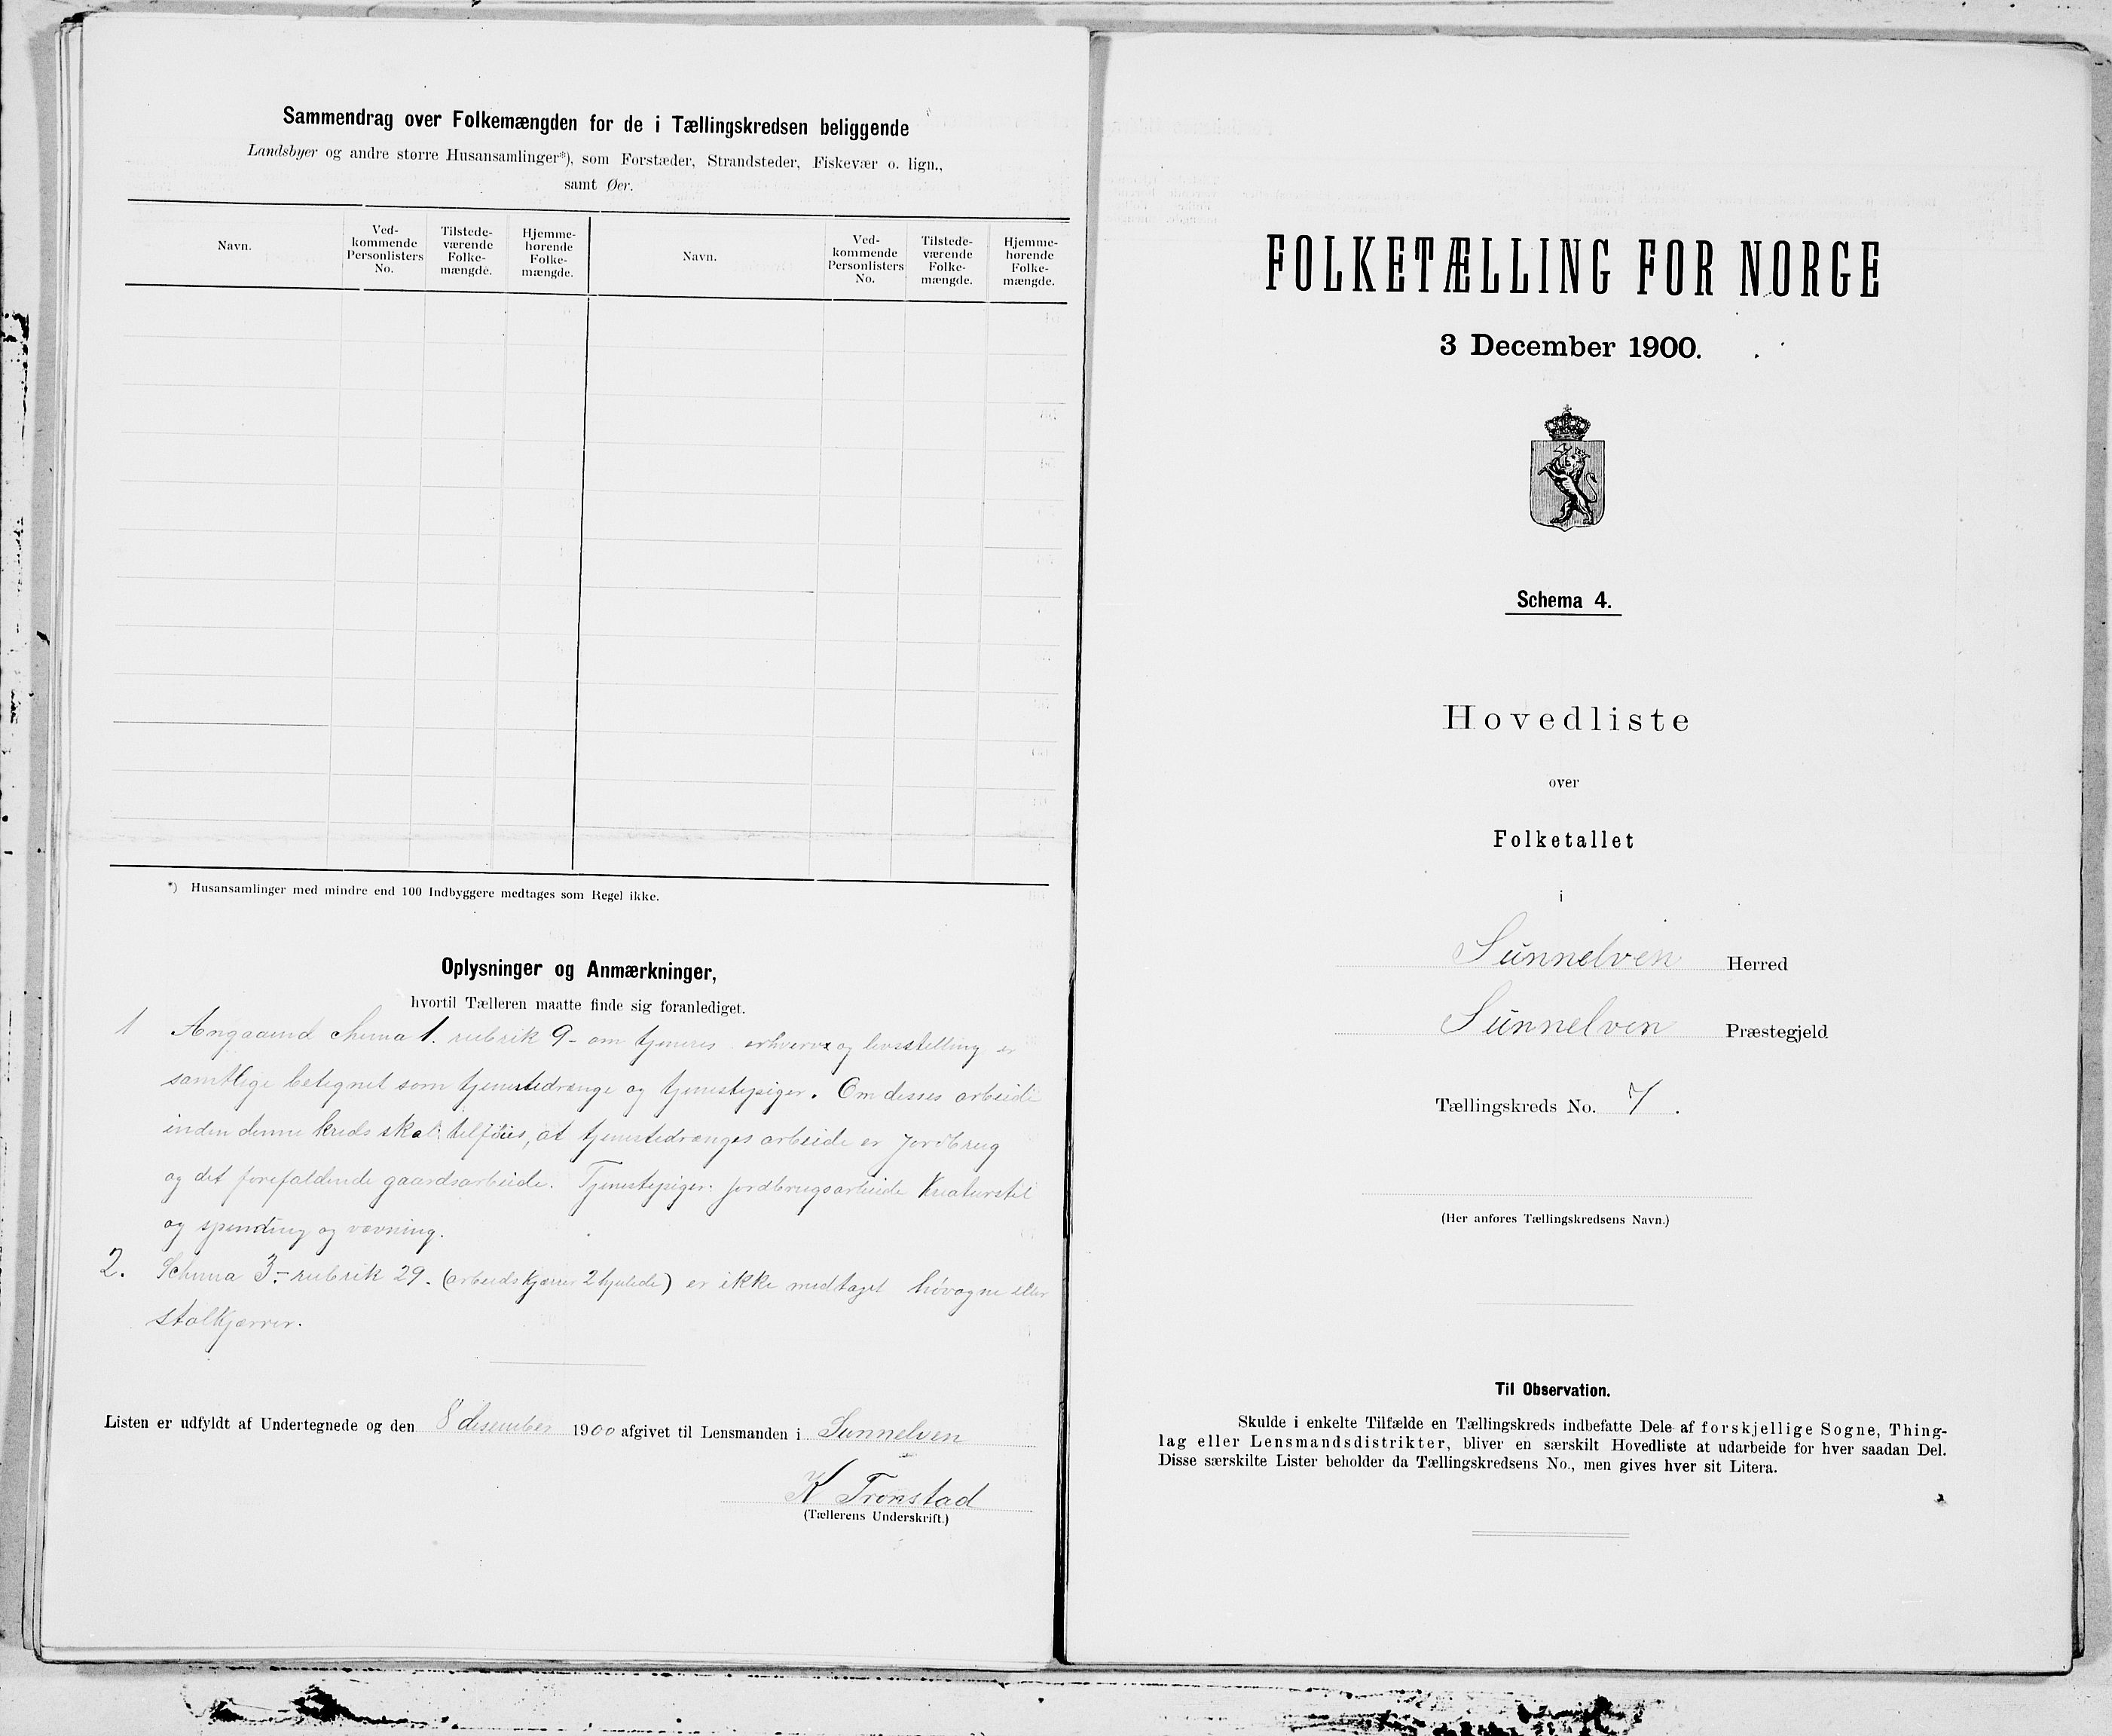 Sammendrag over Folkemængden for de i Tællingskredsen beliggende
Landsbyer og andre større Husansamlinger*), som Forstæder, Strandsteder, Fiskevær o. lign.,
samt Øer.
Navn.
Ved-
kommende
Personlisters
No.
Tilstede-
værende
Folke-
mængde.
Hjemme-
hørende
Folke-
mængde.
Navn.
Ved-
kommende
Personlisters
No.
Tilstede-
værende
Folke-
mængde.
Hjemme-
hørende
Folke-
mængde.
*) Husansamlinger med mindre end 100 Indbyggere medtages som Regel ikke.
Oplysninger og Anmærkninger,
hvortil Tælleren maatte finde sig foranlediget.
1 Angaaend schema 1. rubrik 9 – om tjeneres erhverv og livsstilling er
samtlige betegnet som tjenestedrænge og tjenestepiger. Om disses arbeide
inden denne kreds skal tilføies, at tjenestedrænges arbeide er jordbrug
og det forefaldende gaardsarbeide. Tjenestepiger: jordbrugsarbeide Kreaturstel
og spinding og vævning.
2. Schema 3 – rubrik 29. (arbeidskjærrer 2 hjulede) er ikke medtaget høvogne eller
stolkjærrer.
Listen er udfyldt af Undertegnede og den 8 desember 1900 afgivet til Lensmanden i Sunnelven
K Tronstad
(Tællerens Underskrift.)
FOLKETÆLLING FOR NORGE
3 December 1900.
Schema 4.
Hovedliste
over
Folketallet
i
Sunnelven Herred
Sunnelven Præstegjeld
Tællingskreds No. 7.
(Her anføres Tællingskredsens Navn.)
Til Observation.
Skulde i enkelte Tilfælde en Tællingskreds indbefatte Dele af forskjellige Sogne, Thing-
lag eller Lensmandsdistrikter, bliver en særskilt Hovedliste at udarbeide for hver saadan Del.
Disse særskilte Lister beholder da Tællingskredsens No., men gives hver sit Litera.